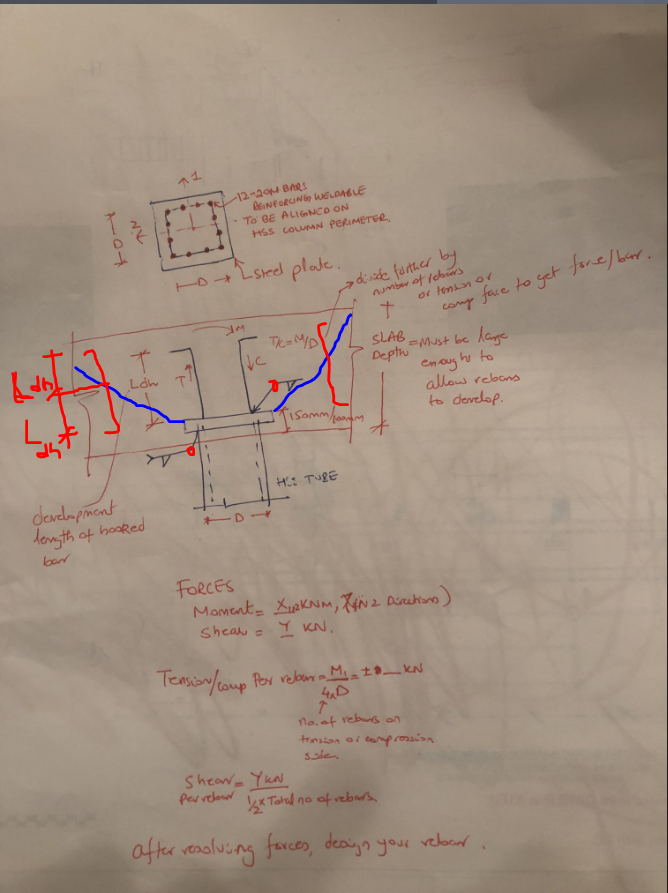 1
12-20M BARS
REINFORCING WELDABLE
TO BE ALIGNED ON
HSS COLUMN PERIMETER.
2
D
D
Steel plate.
divide further by
number of rebars
or tension or
comp face to get force/bar.
M
T/C = M/D
SLAB = Must be large
Depth enough to
allow rebars
to develop.
T
C
Ldh
Ldh
Ldh
150mm/200mm
HSS TUBE
D
development
length of hooked
bar
FORCES
Moment = X1,2 KNM, (in 2 Directions)
Shear = Y KN.
Tension/comp Per rebar = M1/4xD = ± __ KN
no. of rebars on
tension or compression
side.
Shear = Y KN
Per rebar 1/2 x Total no of rebars
After resolving forces, design your rebar.